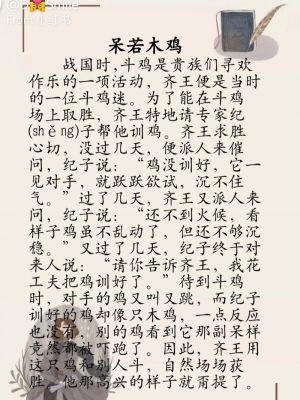 From 小红书
呆若木鸡
战国时,斗鸡是贵族们寻欢
作乐的一项活动，齐王便是当时
的一位斗鸡迷。为了能在斗鸡
场上取胜，齐王特地请专家纪
(shěng)子帮他训鸡。齐王求胜
心切，没过几天，便派人来催
问，纪子说：“鸡没训好，它一
见对手，就跃跃欲试，沉不住
气。”过了几天，齐王又派人来
问，纪子说：“还不到火候，看
样子鸡虽不乱动了，但还不够沉
稳。”又过了几天，纪子终于对
来人说：“请你告诉齐王，我花
工夫把鸡训好了。”待到斗鸡
时，对手的鸡又叫又跳，而纪子
训好的鸡却像只木鸡，一点反应
也没有，别的鸡看到它那副呆样
竟然都被吓跑了。因此，齐王用
这只鸡和别人斗，自然场场获
胜，他那高兴的样子就甭提了。